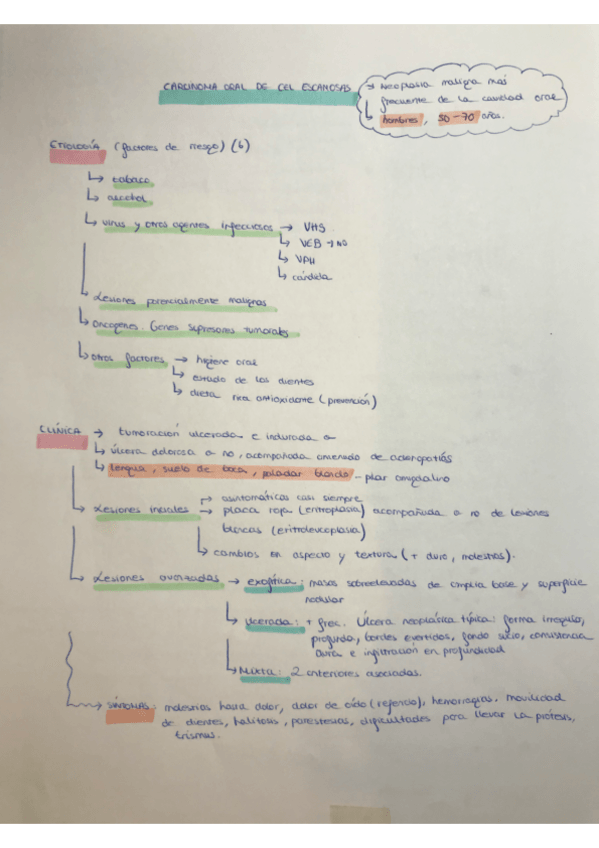 CARCINOMA ORAL DE CEL ESCAMOSAS
→ Neoplasia maligna más
frecuente de la cavidad oral
↳ hombres, 50-70 años.
ETIOLOGÍA (factores de riesgo) (6)
↳ tabaco
↳ alcohol
↳ virus y otros agentes infecciosos → VHS
↳ VEB → NO
↳ VPH
↳ cándida
↳ Lesiones potencialmente malignas
↳ Oncogenes. Genes supresores tumorales
↳ otros factores → higiene oral
↳ estado de los dientes
↳ dieta rica antioxidante (prevención)
CLÍNICA → tumoración ulcerada e indurada
↳ úlcera dolorosa o no, acompañada de adenopatías
↳ lengua, suelo de boca, paladar blando - pilar amigdalino
↳ Lesiones iniciales → asintomáticas casi siempre
→ placa roja (eritroplasia) acompañada o no de lesiones
blancas (eritroleucoplasia)
↳ cambios en aspecto y textura (+ duro, molestias).
↳ Lesiones avanzadas → exofítica: masas sobreelevadas de amplia base y superficie
nodular
↳ Ulcerada: + frec. Úlcera neoplásica típica: forma irregular,
profunda, bordes evertidos, fondo sucio, consistencia
dura e infiltración en profundidad
↳ Mixta: 2 anteriores asociadas.
→ SÍNTOMAS: molestias hasta dolor, dolor de oído (referido), hemorragias, movilidad
de dientes, halitosis, parestesias, dificultades para llevar la prótesis,
trismus.